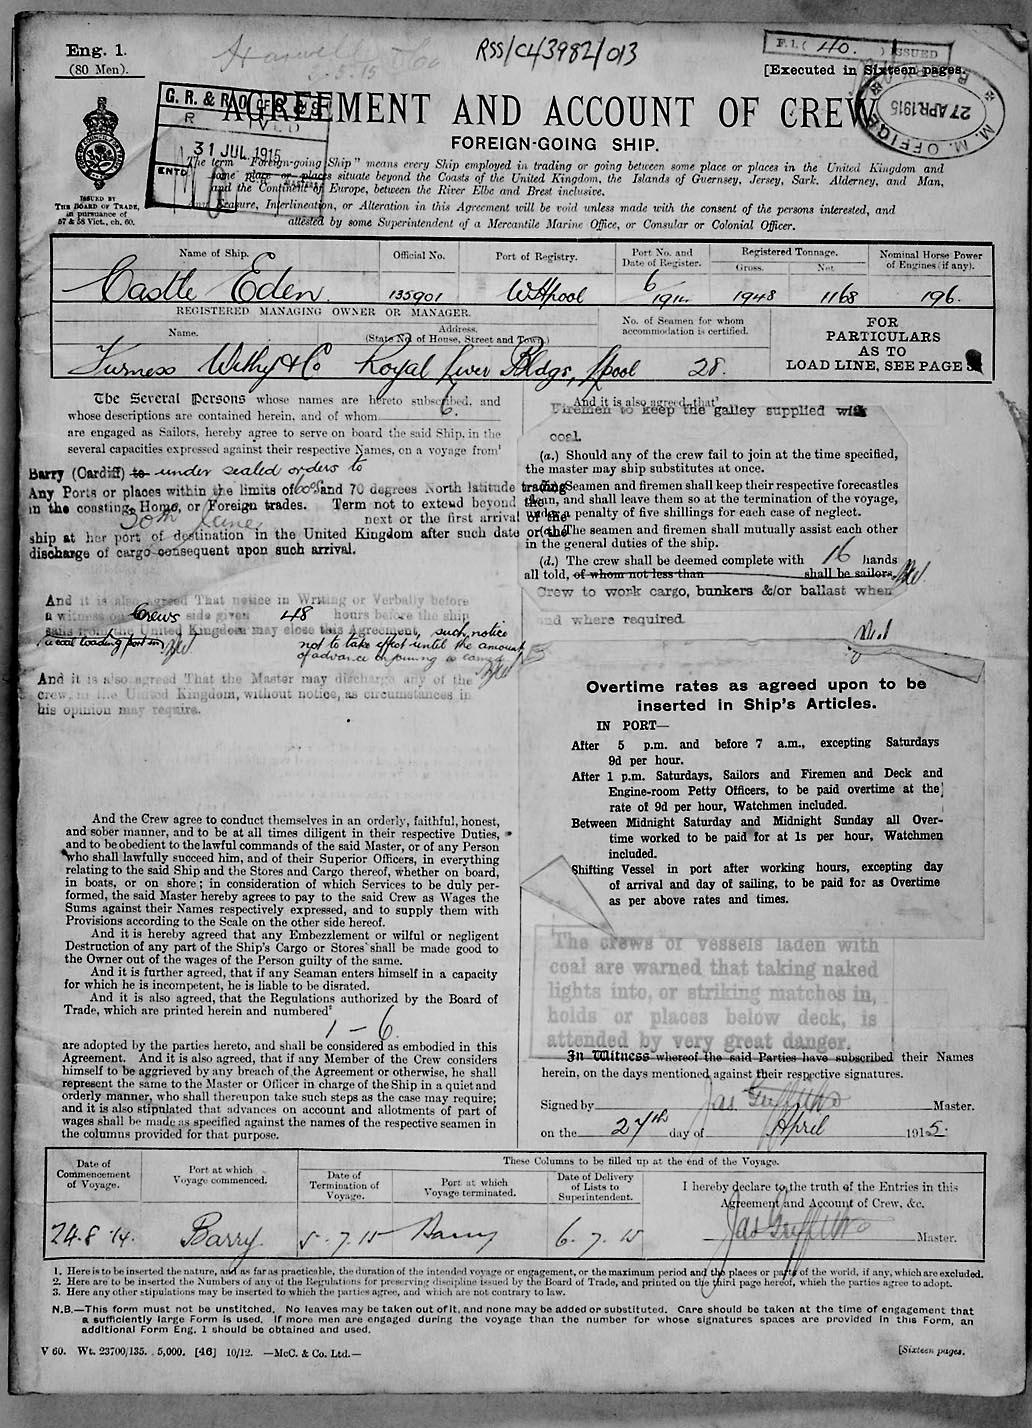 Eng. 1.
(80 Men).
RSS/CL/3982/013
F. 1. ( 40. ) ISSUED
[Executed in Sixteen pages.
AGREEMENT AND ACCOUNT OF CREW
FOREIGN-GOING SHIP.
G. R. & R. O. OF S. & S.
31 JUL 1915
ENTD
M. M. OFFICE
27 APR 1915
ISSUED BY
THE BOARD OF TRADE,
in pursuance of
57 & 58 Vict., ch. 60.
The term "Foreign-going Ship" means every Ship employed in trading or going between some place or places in the United Kingdom and
some place or places situate beyond the Coasts of the United Kingdom, the Islands of Guernsey, Jersey, Sark, Alderney, and Man,
and the Continent of Europe, between the River Elbe and Brest inclusive.
Any Erasure, Interlineation, or Alteration in this Agreement will be void unless made with the consent of the persons interested, and
attested by some Superintendent of a Mercantile Marine Office, or Consular or Colonial Officer.
Name of Ship. Official No. Port of Registry. Port No. and Date of Register. Registered Tonnage. Gross. Net. Nominal Horse Power of Engines (if any).
Castle Eden. 135901 WHpool 6/1914 1948 1168 196.
REGISTERED MANAGING OWNER OR MANAGER.
Name. Address. (State No. of House, Street and Town.) No. of Seamen for whom accommodation is certified.
Furness Withy & Co Royal Liver Bldgs, Lpool 28.
FOR
PARTICULARS
AS TO
LOAD LINE, SEE PAGE
The Several Persons whose names are hereto subscribed, and
whose descriptions are contained herein, and of whom 6.
are engaged as Sailors, hereby agree to serve on board the said Ship, in the
several capacities expressed against their respective Names, on a voyage from¹
Barry (Cardiff) to under sealed orders to
Any Ports or places within the limits of 60 S and 70 degrees North latitude trading
in the coasting, Home, or Foreign trades. Term not to extend beyond the
30th June next or the first arrival of the
ship at her port of destination in the United Kingdom after such date or the
discharge of cargo consequent upon such arrival.
And it is also agreed That notice in Writing or Verbally before
a witness on Crews side given 48 hours before the ship
sails from the United Kingdom may close this Agreement, such notice
not to take effect until the amount
of advance
And it is also agreed That the Master may discharge any of the
crew, in the United Kingdom, without notice, as circumstances in
his opinion may require.
And the Crew agree to conduct themselves in an orderly, faithful, honest,
and sober manner, and to be at all times diligent in their respective Duties,
and to be obedient to the lawful commands of the said Master, or of any Person
who shall lawfully succeed him, and of their Superior Officers, in everything
relating to the said Ship and the Stores and Cargo thereof, whether on board,
in boats, or on shore; in consideration of which Services to be duly per-
formed, the said Master hereby agrees to pay to the said Crew as Wages the
Sums against their Names respectively expressed, and to supply them with
Provisions according to the Scale on the other side hereof.
And it is hereby agreed that any Embezzlement or wilful or negligent
Destruction of any part of the Ship's Cargo or Stores shall be made good to
the Owner out of the wages of the Person guilty of the same.
And it is further agreed, that if any Seaman enters himself in a capacity
for which he is incompetent, he is liable to be disrated.
And it is also agreed, that the Regulations authorized by the Board of
Trade, which are printed herein and numbered²
1 – 6.
are adopted by the parties hereto, and shall be considered as embodied in this
Agreement. And it is also agreed, that if any Member of the Crew considers
himself to be aggrieved by any breach of the Agreement or otherwise, he shall
represent the same to the Master or Officer in charge of the Ship in a quiet and
orderly manner, who shall thereupon take such steps as the case may require;
and it is also stipulated that advances on account and allotments of part of
wages shall be made as specified against the names of the respective seamen in
the columns provided for that purpose.
And it is also agreed, that³
Firemen to keep the galley supplied with
coal.
(a.) Should any of the crew fail to join at the time specified,
the master may ship substitutes at once.
Seamen and firemen shall keep their respective forecastles
clean, and shall leave them so at the termination of the voyage,
under a penalty of five shillings for each case of neglect.
The seamen and firemen shall mutually assist each other
in the general duties of the ship.
(d.) The crew shall be deemed complete with 16 hands
all told, of whom not less than shall be sailors.
Crew to work cargo, bunkers &/or ballast when
and where required.
Overtime rates as agreed upon to be
inserted in Ship's Articles.
IN PORT—
After 5 p.m. and before 7 a.m., excepting Saturdays
9d per hour.
After 1 p.m. Saturdays, Sailors and Firemen and Deck and
Engine-room Petty Officers, to be paid overtime at the
rate of 9d per hour, Watchmen included.
Between Midnight Saturday and Midnight Sunday all Over-
time worked to be paid for at 1s per hour, Watchmen
included.
Shifting Vessel in port after working hours, excepting day
of arrival and day of sailing, to be paid for as Overtime
as per above rates and times.
The crews of vessels laden with
coal are warned that taking naked
lights into, or striking matches in,
holds or places below deck, is
attended by very great danger.
In Witness whereof the said Parties have subscribed their Names
herein, on the days mentioned against their respective signatures.
Signed by Jas. Griffiths Master.
on the 27th day of April 1915.
Date of Commencement of Voyage. Port at which Voyage commenced. These Columns to be filled up at the end of the Voyage.
Date of Termination of Voyage. Port at which Voyage terminated. Date of Delivery of Lists to Superintendent.
I hereby declare to the truth of the Entries in this
Agreement and Account of Crew, &c.
24.8.14. Barry. 5.7.15 Barry 6.7.15 Jas Griffiths Master.
1. Here is to be inserted the nature, and as far as practicable, the duration of the intended voyage or engagement, or the maximum period and the places or parts of the world, if any, which are excluded.
2. Here are to be inserted the Numbers of any of the Regulations for preserving discipline issued by the Board of Trade, and printed on the third page hereof, which the parties agree to adopt.
3. Here any other stipulations may be inserted to which the parties agree, and which are not contrary to law.
N.B.—This form must not be unstitched. No leaves may be taken out of it, and none may be added or substituted. Care should be taken at the time of engagement that
a sufficiently large Form is used. If more men are engaged during the voyage than the number for whose signatures spaces are provided in this Form, an
additional Form Eng. 1 should be obtained and used.
V 60. Wt. 23700/135. 5,000. [46] 10/12. —McC. & Co. Ltd.— [Sixteen pages.